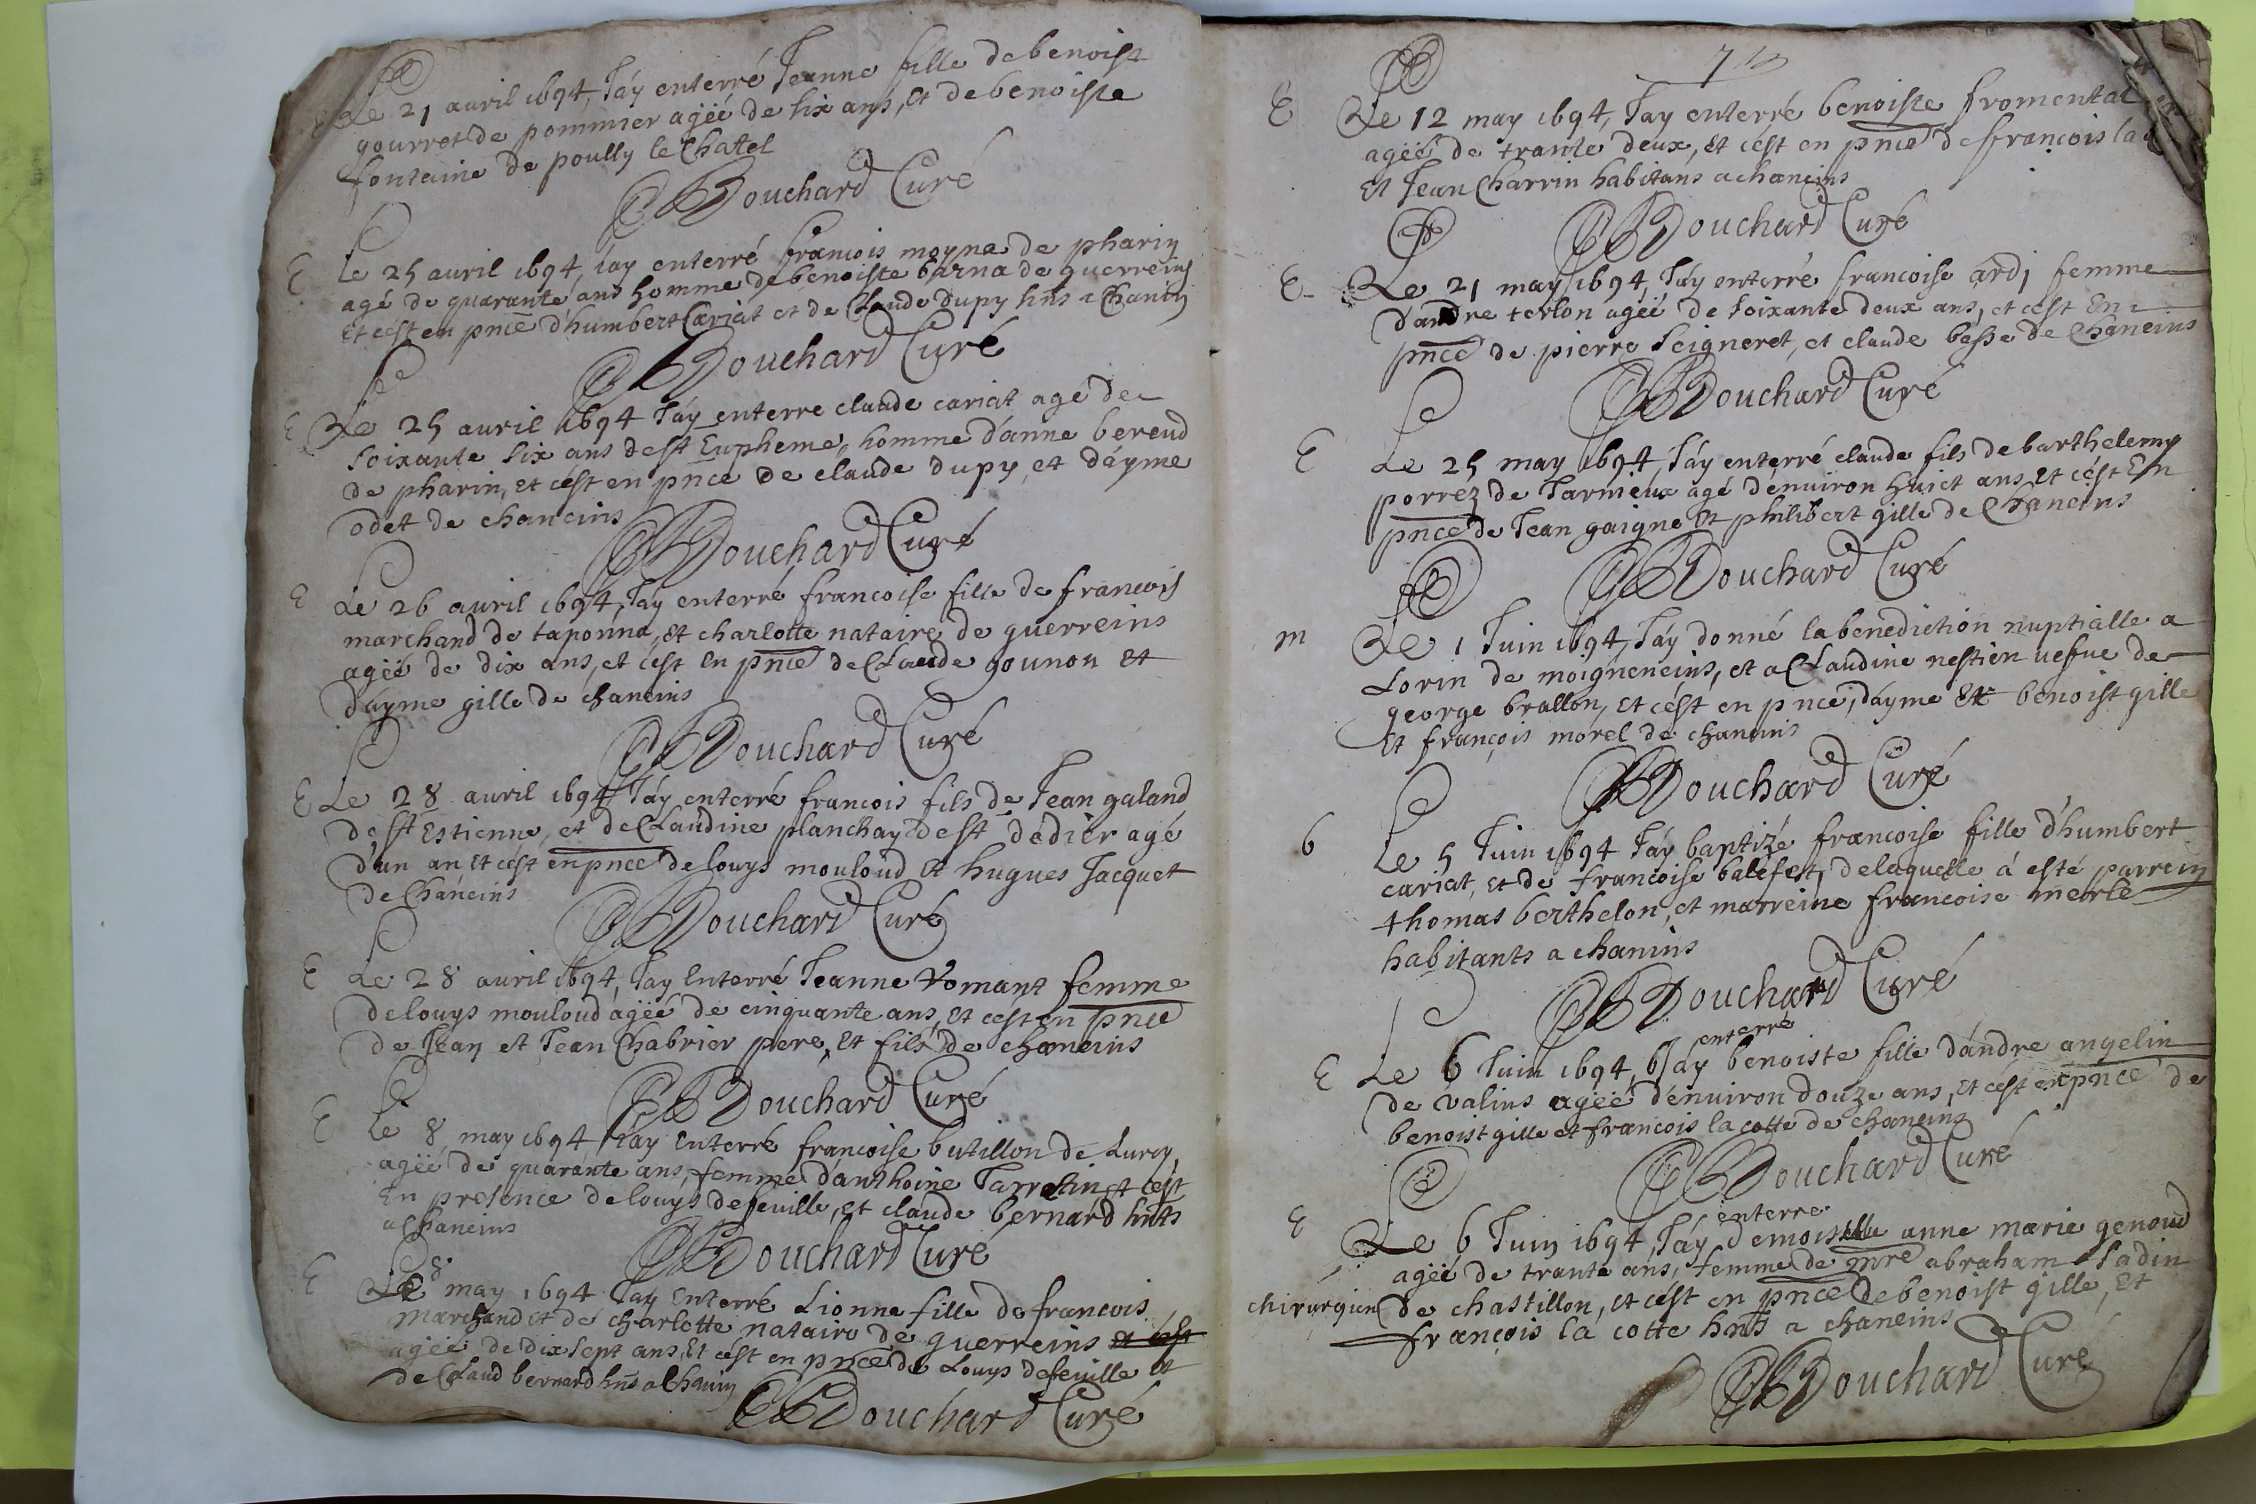 E Le 21 auril 1694, Jáy enterré Jeanne fille de benoist
gourret de pommier agéé de six ans, et de benoiste
fontaine de poully le Chatel
Bouchard Curé
E Le 25 auril 1694, iay enterré francois moyne de pharin
agé de quarante ans homme de benoiste barna de guerreins
Et cést en pnce d'humbert Cariat et de Claude dupy hns a Chanins
Bouchard Curé
E Le 25 auril 1694 Jáy enterre claude cariat age de
soixante six ans de st Eupheme, homme d'anne bereud
de pharin, et cést en pnce de claude dupy, et d'áyme
odet de chaneins
Bouchard Curé
E Le 26 auril 1694, Jáy enterré francoise fille de francois
marchand de taponna, et charlotte nataire de guerreins
agéé de dix ans, et cést en pnce de Claude gounon et
d'áyme gille de chaneins
Bouchard Curé
E Le 28 auril 1694 Jáy enterré francois fils de Jean galand
de st Estienne, et de Claudine planchay de st dédier agé
d'un an et cést en pnce de louys mouloud et hugues Jacquet
de Chaneins
Bouchard Curé
E Le 28 auril 1694, Jay Enterré Jeanne Vomant femme
de louys mouloud agéé de cinquante ans, et cést en pnce
de Jean et Jean Chabrier pere, et fils de chaneins
Bouchard Curé
E Le 8 may 1694 Jay Enterré francoise butillon de Lurcy,
agéé de quarante ans, femme d'anthoine Tarrelin et cést
En presence de louys defeuille, et claude bernard hnts
a Chaneins
Bouchard Curé
E Le 8 may 1694 Jay Enterré Lionne fille de francois
marchand et de charlotte nataire de guerreins et cést
agéé de dix sept ans, et cést en pnce de Louys defeuille et
de Claud bernard hns a Chanin
Bouchard Curé
E Le 12 may 1694, Jay enterré benoiste fromental
agéé de trante deux, et cést en pnce de françois la
Et Jean Charrin habitans a chaneins
Bouchard Curé
E Le 21 may 1694, Jáy enterré francoise ardi femme
d'andre terlon agéé de soixante deux ans, et cést En
pnce de pierre Seigneret, et claude besse de Chaneins
Bouchard Curé
E Le 25 may 1694, Jáy enterré claude fils de barthelemy
porrez de Tarnieux agé d'enuiron huict ans, et cést En
pnce de Jean gaigne et philibert gille de Chaneins
Bouchard Curé
m Le 1 Juin 1694, Jáy donné la benediction nuptialle a
Lorin de moigneneins, et a Claudine nestien uefue de
george brallon, et cést en pnce, d'áyme Et benoist gille
Et françois morel de chaneins
Bouchard Curé
b Le 5 Juin 1694 Jáy baptizé francoise fille d'humbert
cariat, et de francoise balefest, de laquelle á esté parrein
thomas berthelon, et marreine francoise merle
habitants a chanins
Bouchard Curé
enterré
E Le 6 Juin 1694, Jay benoiste fille d'andre angelin
de válins agéé d'enuiron douze ans, et cést en pnce de
benoist gille et francois la cotte de chaneins
Bouchard Curé
enterre
E Le 6 Juin 1694, Jáy demoiselle anne marie genoud
agéé de trante ans, femme de mre abraham Sadin
chirurgien de chastillon, et cést en pnce de benoist gille, Et
françois la cotte hns a chaneins
Bouchard Curé